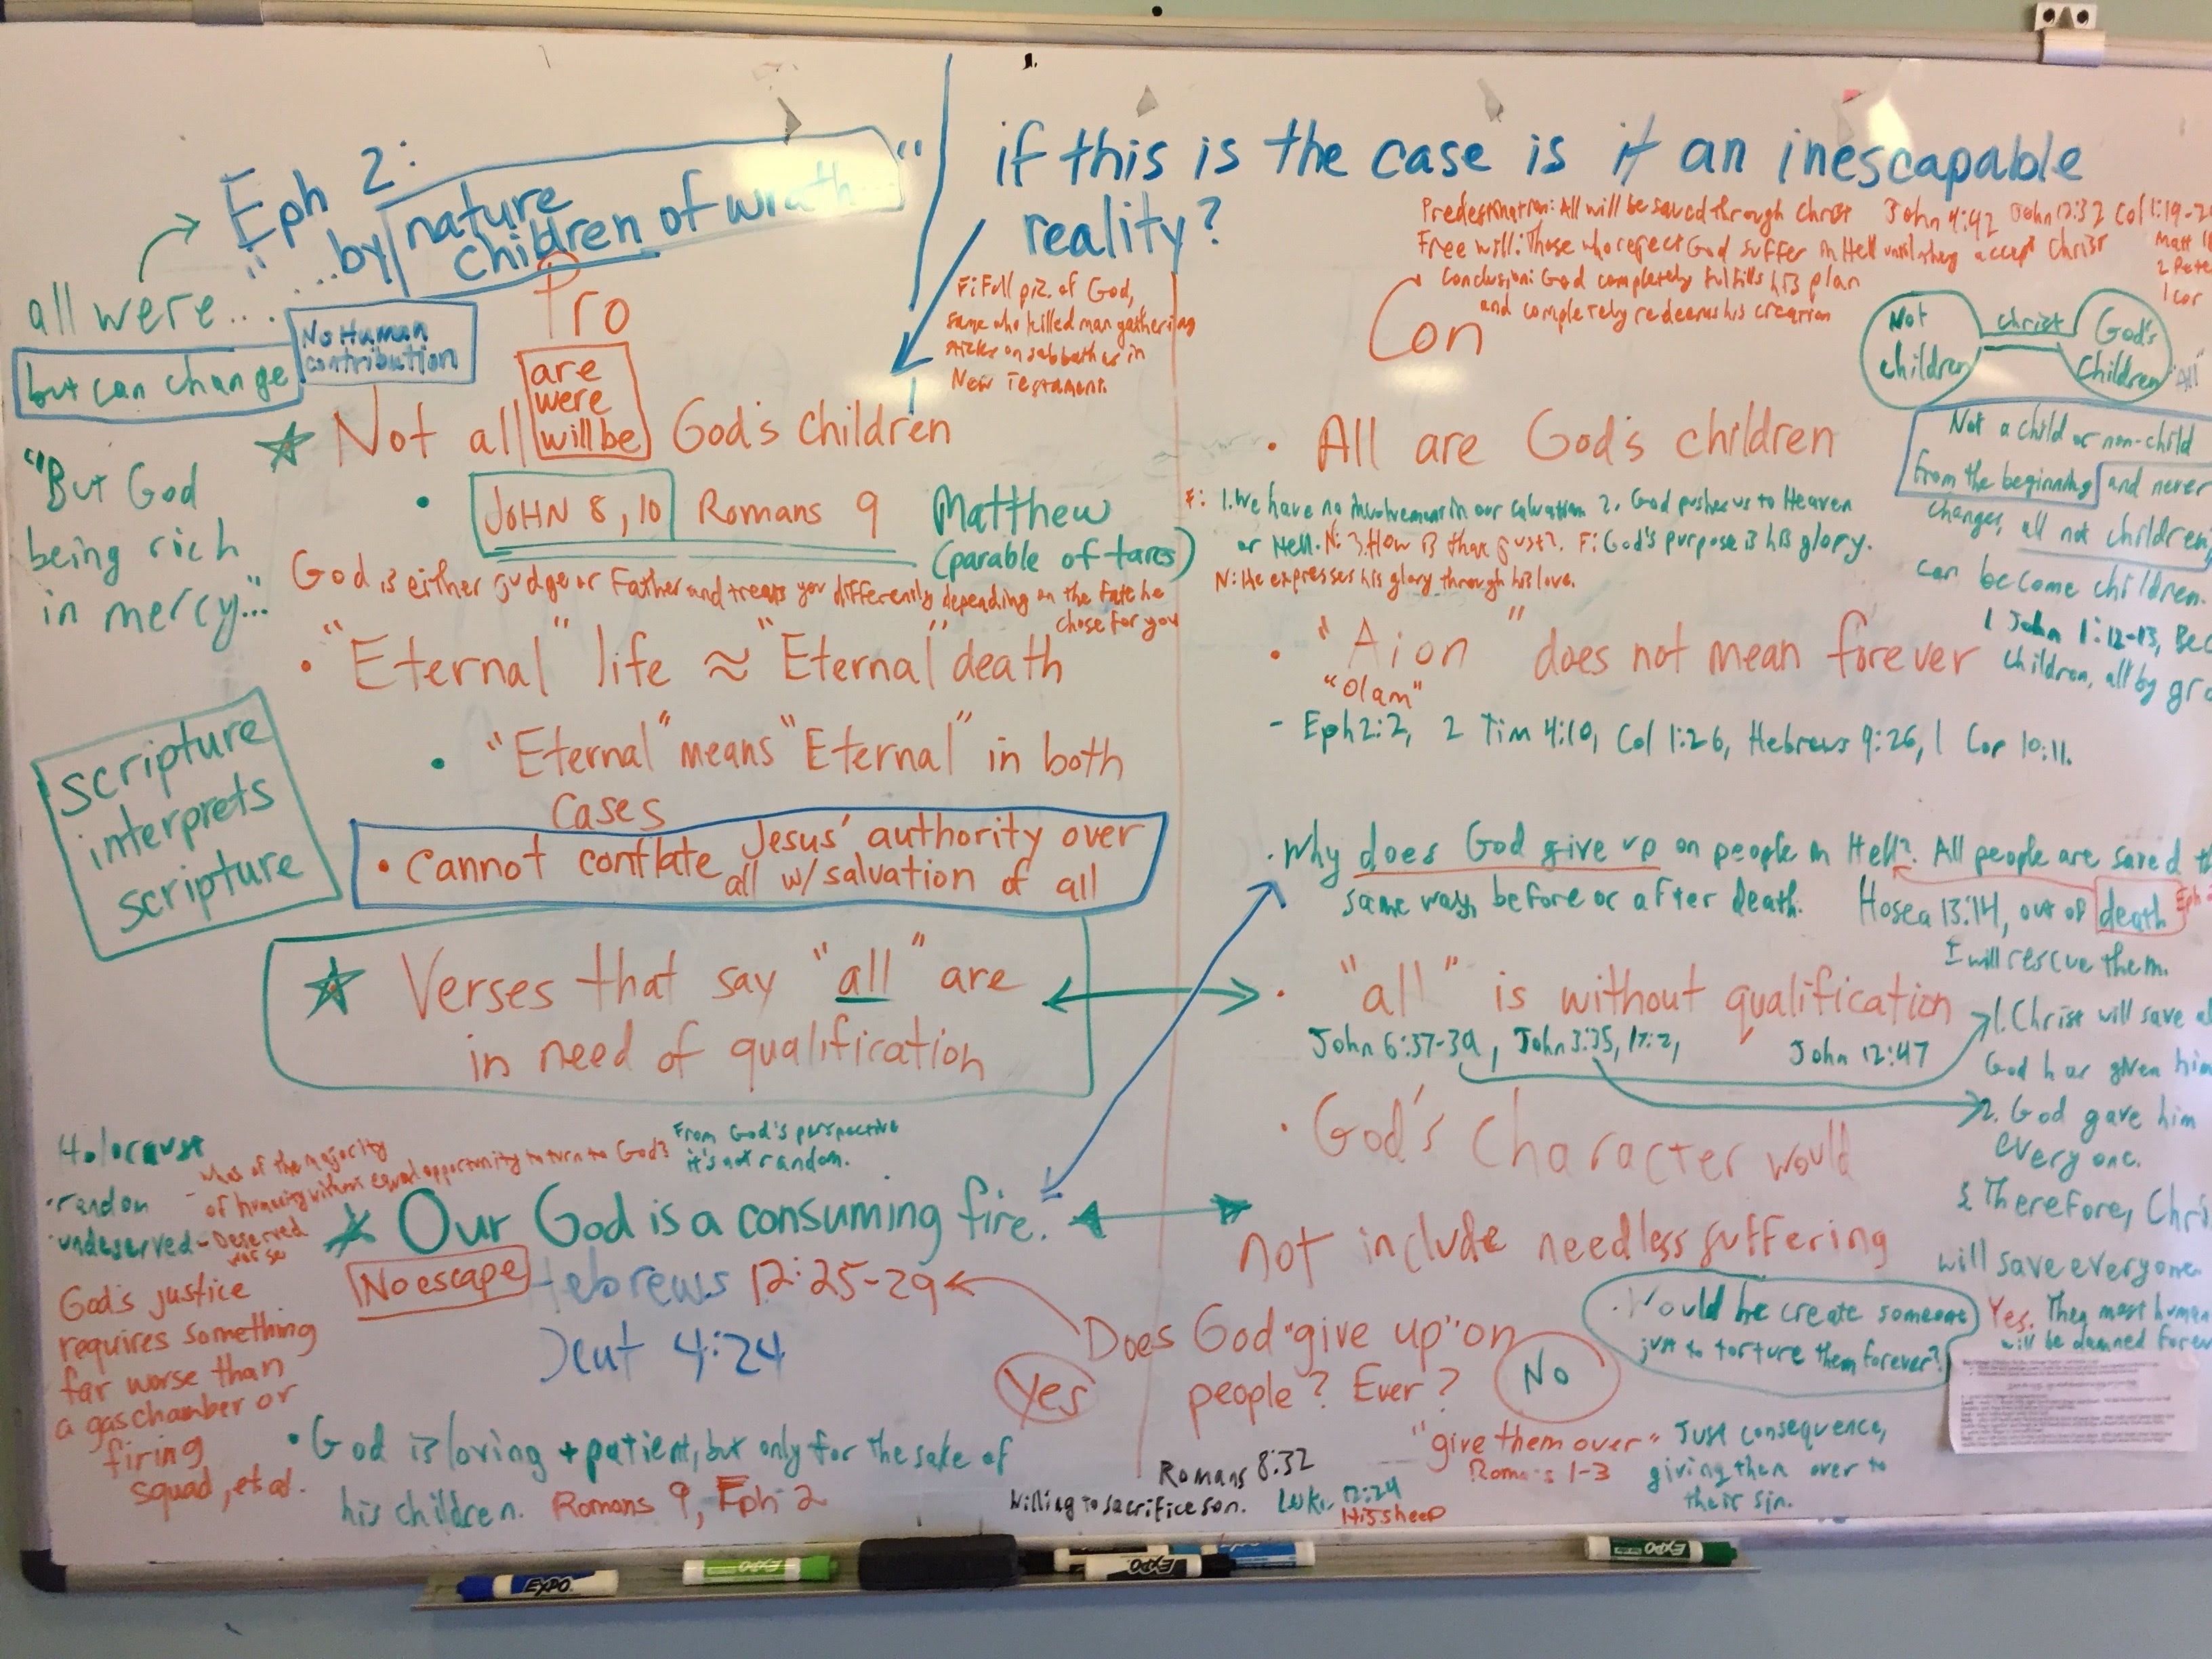 Eph 2:
"...by nature
children of wrath..."
all were...
but can change
No Human
contribution
"But God
being rich
in mercy..."
scripture
interprets
scripture
Pro
are
were
will be
Not all God's children
JOHN 8, 10 Romans 9 Matthew
(parable of tares)
God is either judge or Father and treats you differently depending on the fate he
chose for you
"Eternal" life ≈ "Eternal" death
• "Eternal" means "Eternal" in both
cases
• Cannot conflate Jesus' authority over
all w/ salvation of all
Verses that say "all" are
in need of qualification
Holocaust
• random
• undeserved - Deserved
worse
of the majority
of humanity without equal opportunity to turn to God?
From God's perspective
it's not random.
God's justice
requires something
far worse than
a gas chamber or
firing
squad, et al.
Our God is a consuming fire.
No escape
Hebrews 12:25-29
Deut 4:24
• God is loving + patient, but only for the sake of
his children. Romans 9, Eph 2
if this is the case is it an inescapable
reality?
F: Full pic. of God,
same who killed man gathering
sticks on sabbath as in
New Testament.
Predestination: All will be saved through Christ John 4:42 John 12:32 Col 1:19-2
Free will: Those who reject God suffer in Hell until they accept Christ
Conclusion: God completely fulfills his plan
and completely redeems his creation
Matt 1
2 Pete
1 Cor
Con
Not
children
Christ
God's
Children
"All"
Not a child or non-child
from the beginning and never
changes, all not children,
can become children.
1 John 1:12-13, Bec
children, all by gra
• All are God's children
F: 1. We have no involvement in our salvation 2. God pushes us to Heaven
or Hell. N: 3. How is that just? F: God's purpose is his glory.
N: He expresses his glory through his love.
• "Aion" does not mean forever
"Olam"
- Eph 2:2, 2 Tim 4:10, Col 1:26, Hebrews 9:26, 1 Cor 10:11.
• Why does God give up on people in Hell? All people are saved th
same way, before or after death.
Hosea 13:14, out of death
Eph 2
I will rescue them.
• "all" is without qualification
John 6:37-39, John 3:35, 17:2, John 12:47
1. Christ will save al
God has given him
2. God gave him
everyone.
Therefore, Chri
will save everyone
• God's Character would
not include needless suffering
• Would he create someone
just to torture them forever?
Yes. They most human
will be damned forev
Does God "give up" on
people? Ever?
Yes
No
"give them over"
Romans 1-3
Just consequence,
giving them over to
their sin.
Romans 8:32
Willing to sacrifice son.
Luke 12:24
His sheep
EXPO
EXPO
EXPO
EXPO